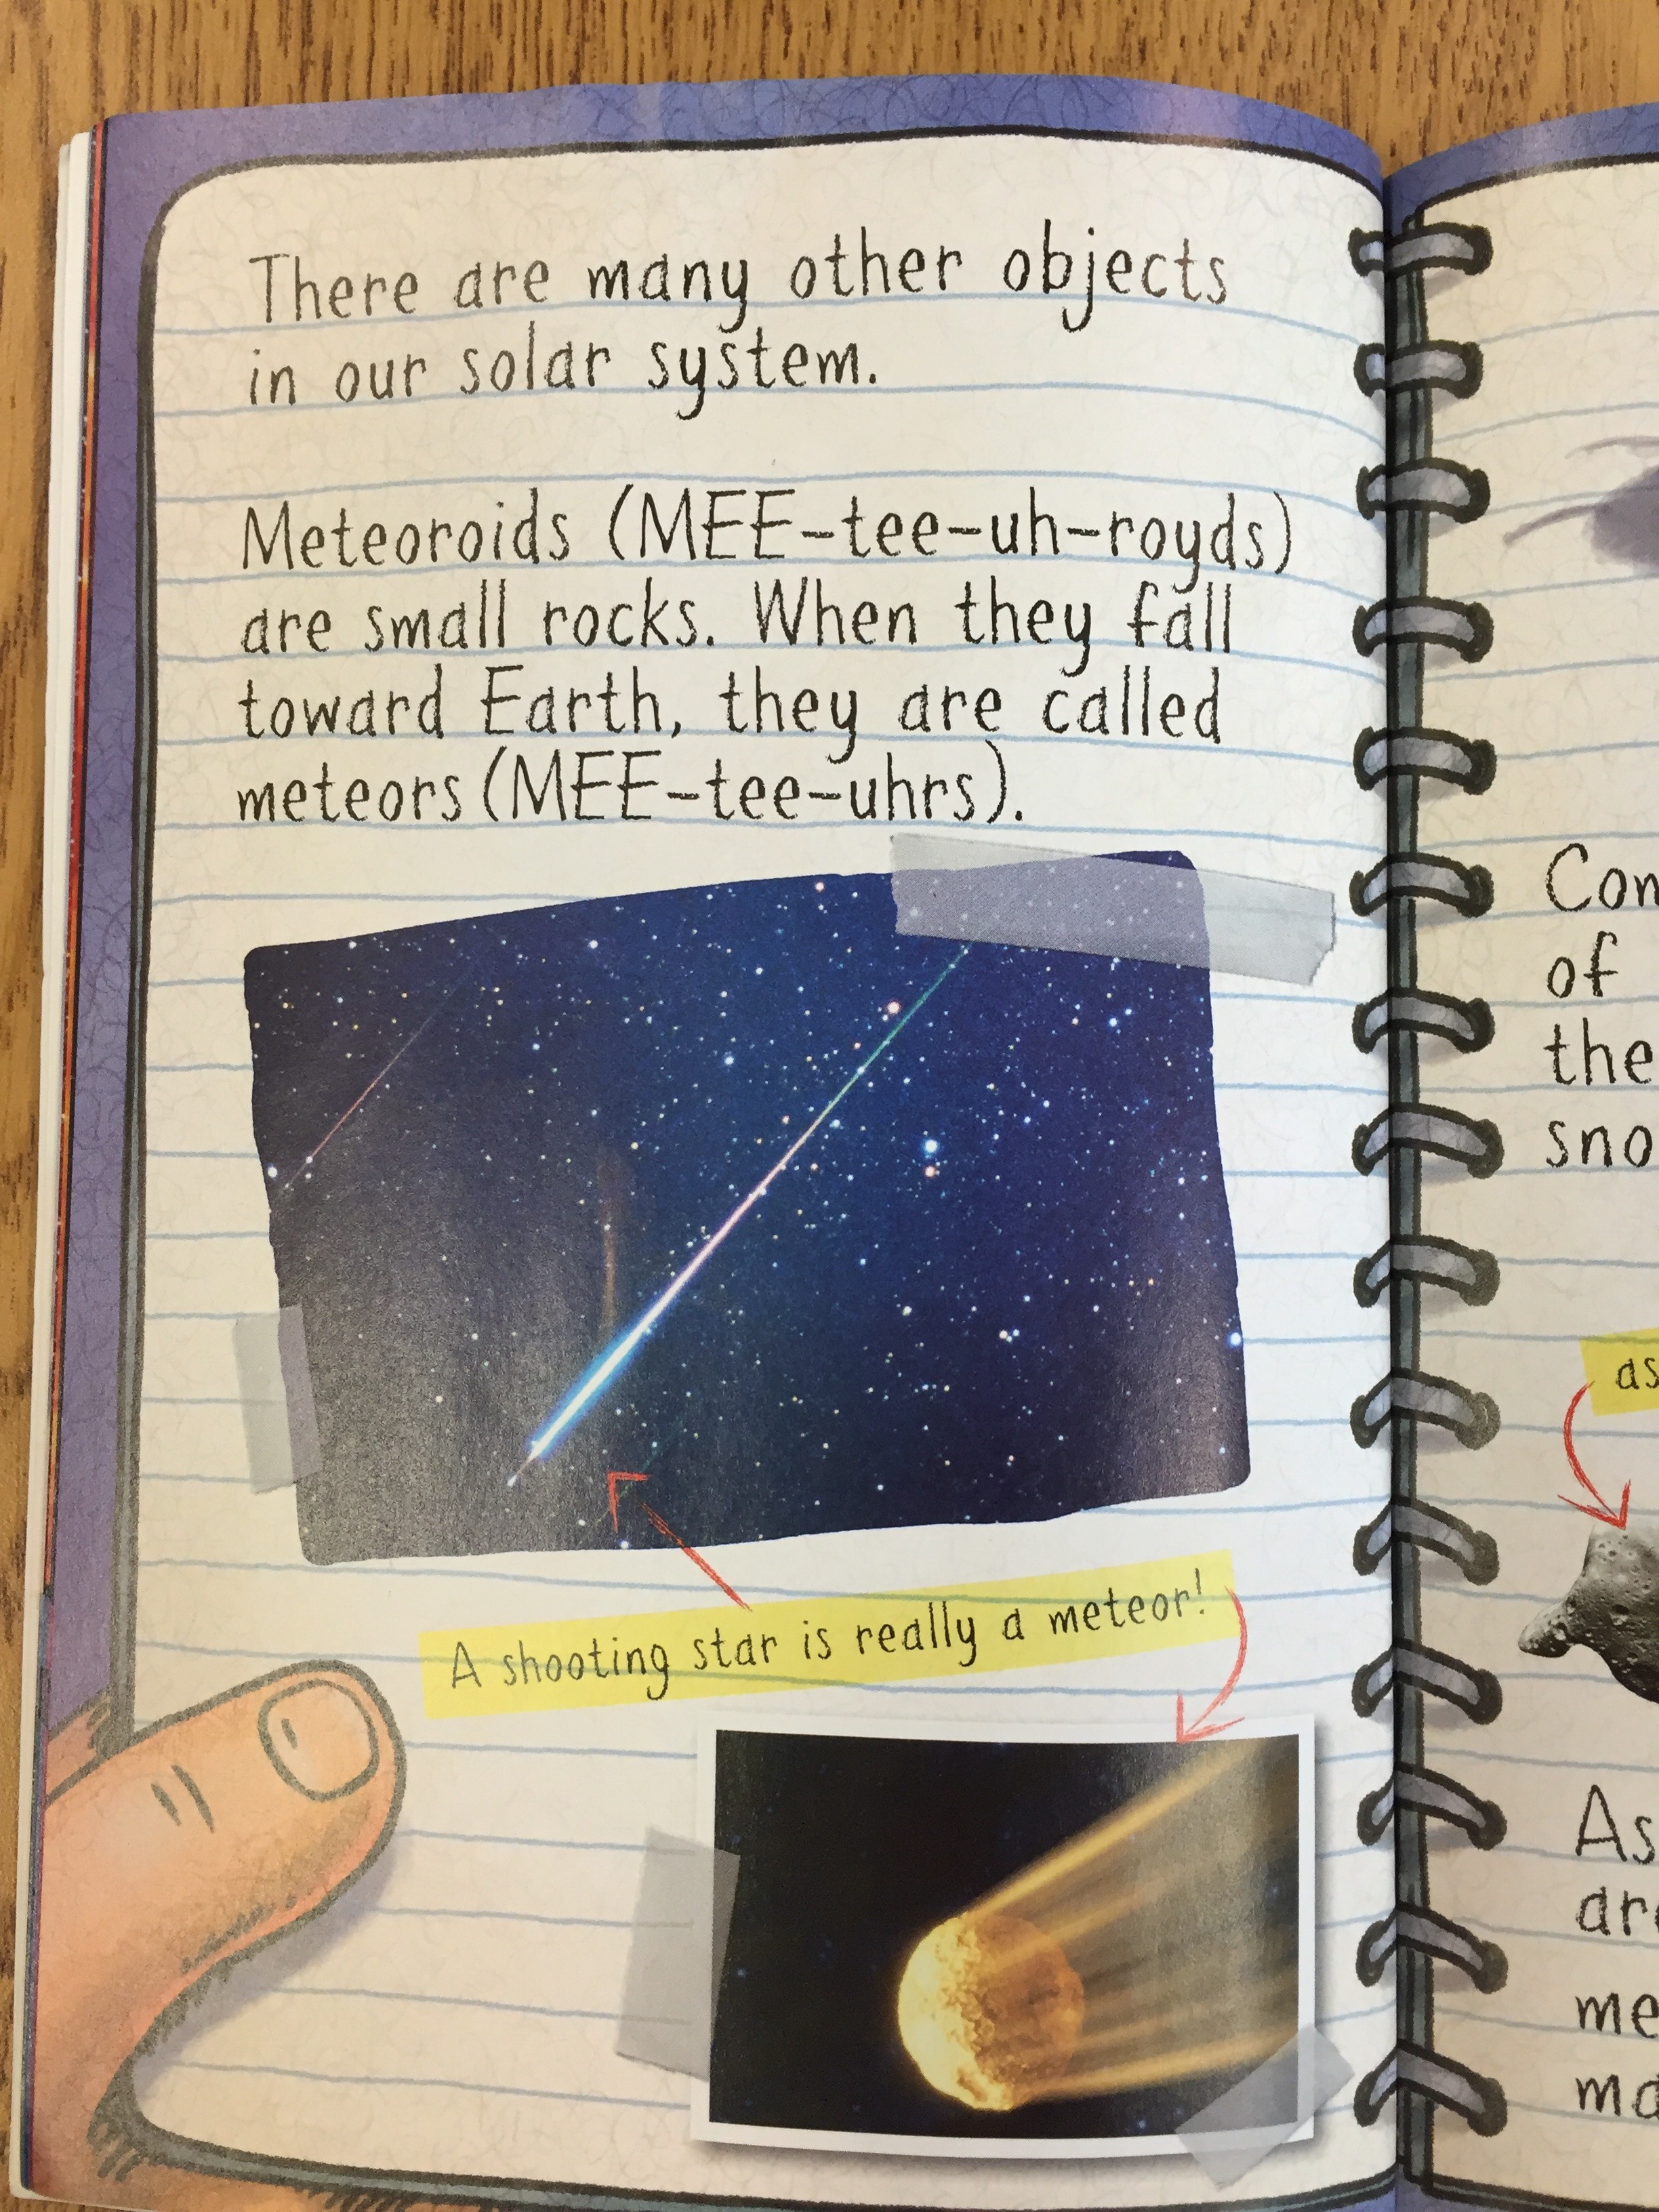 There are many other objects
in our solar system.
Meteoroids (MEE-tee-uh-royds)
are small rocks. When they fall
toward Earth, they are called
meteors (MEE-tee-uhrs).
A shooting star is really a meteor!
of
the